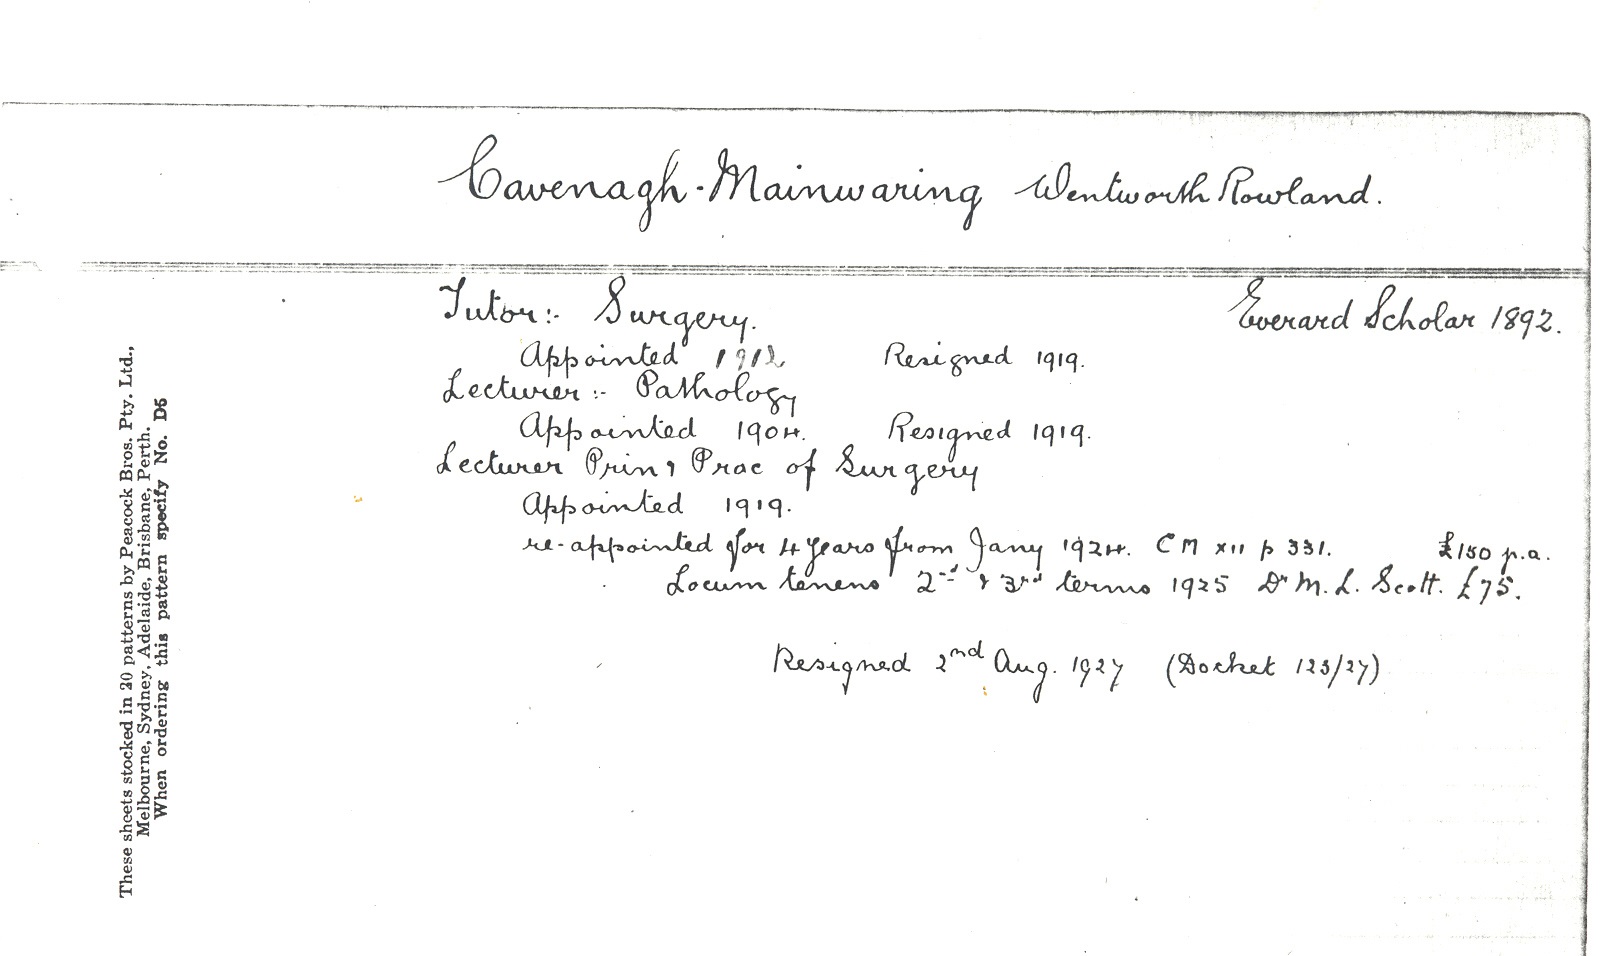 Cavenagh-Mainwaring Wentworth Rowland.
Tutor:- Surgery. Everard Scholar 1892.
Appointed 1912 Resigned 1919.
Lecturer:- Pathology
Appointed 1904. Resigned 1919.
Lecturer Prin & Prac of Surgery
Appointed 1919.
re-appointed for 4 years from Jany 1924. CM XII p 331. £150 p.a.
Locum tenens 2nd & 3rd terms 1925 Dr M. L. Scott. £75.
Resigned 2nd Aug. 1927 (Docket 123/27)
These sheets stocked in 20 patterns by Peacock Bros. Pty. Ltd.,
Melbourne, Sydney, Adelaide, Brisbane, Perth.
When ordering this pattern specify No. D5